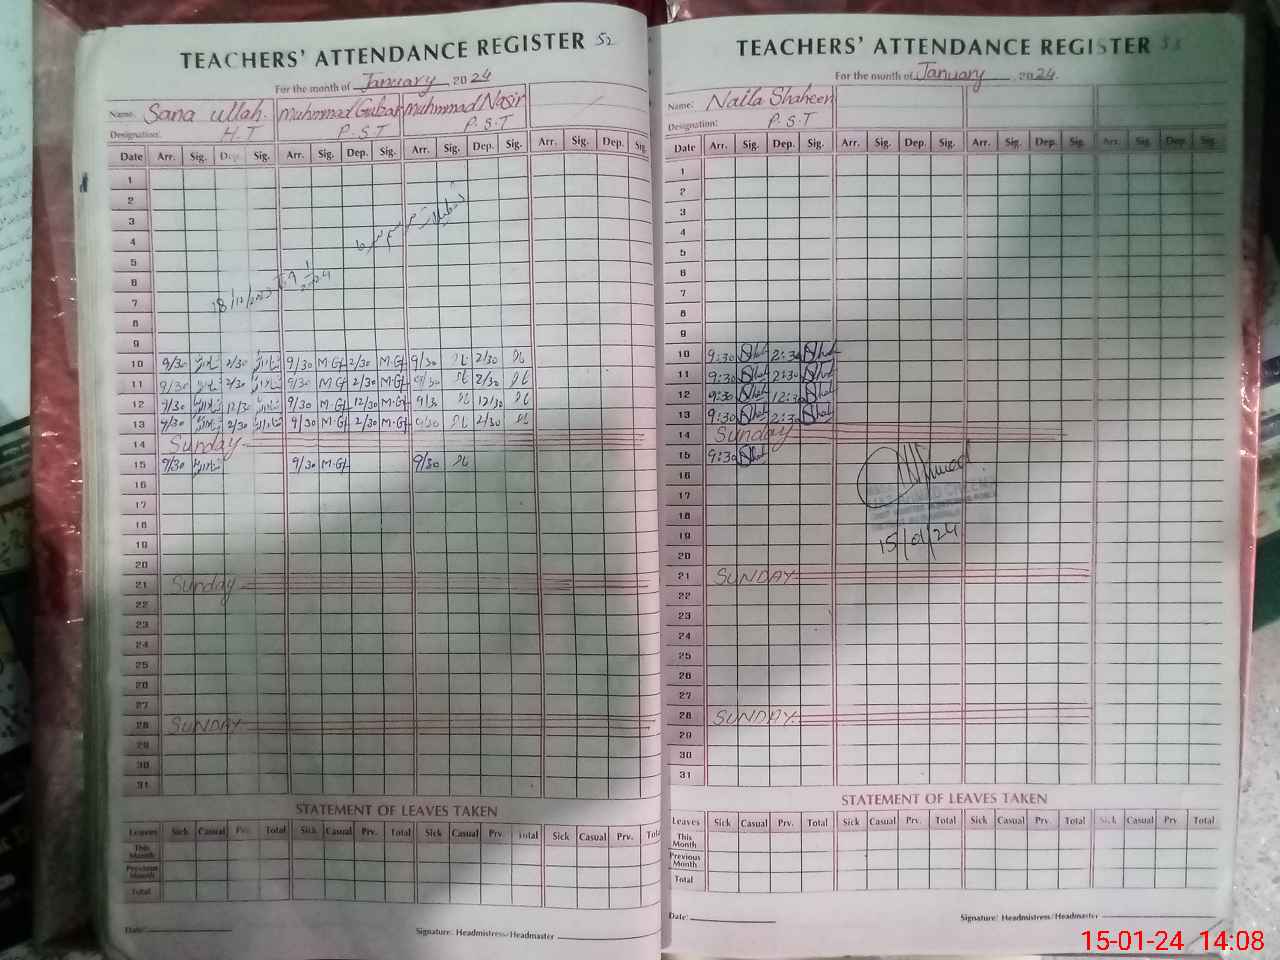 TEACHERS' ATTENDANCE REGISTER 52
For the month of January 2024
Name: Sana ullah. Muhmmad Gulbar Muhmmad Nasir
Designation: H.T P.S.T P.S.T
Date Arr. Sig. Dep. Sig. Arr. Sig. Dep. Sig. Arr. Sig. Dep. Sig. Arr. Sig. Dep. Sig.
1
2
3
4
5
6
7
8
9
10 9/30 2/30 9/30 M.Gl 2/30 M.Gl 9/30 2/30
11 9/30 2/30 9/30 M.Gl 2/30 M.Gl 9/30 2/30
12 9/30 12/30 9/30 M.Gl 12/30 M.Gl 9/30 12/30
13 9/30 2/30 9/30 M.Gl 2/30 M.Gl 9/30 2/30
14 Sunday
15 9/30 9/30 M.Gl 9/30
16
17
18
19
20
21 Sunday
22
23
24
25
26
27
28 SUNDAY
29
30
31
STATEMENT OF LEAVES TAKEN
Leaves Sick Casual Prv. Total Sick Casual Prv. Total Sick Casual Prv. Total Sick Casual Prv. Total
This Month
Previous Month
Total
Date:
Signature: Headmistress/Headmaster
TEACHERS' ATTENDANCE REGISTER 53
For the month of January 2024.
Name: Naila Shaheen
Designation: P.S.T
Date Arr. Sig. Dep. Sig. Arr. Sig. Dep. Sig. Arr. Sig. Dep. Sig. Arr. Sig. Dep. Sig.
1
2
3
4
5
6
7
8
9
10 9:30 2:30
11 9:30 2:30
12 9:30 12:30
13 9:30 2:30
14 Sunday
15 9:30
16
17
18
19
15/01/24
20
21 SUNDAY
22
23
24
25
26
27
28 SUNDAY
29
30
31
STATEMENT OF LEAVES TAKEN
Leaves Sick Casual Prv. Total Sick Casual Prv. Total Sick Casual Prv. Total Sick Casual Prv. Total
This Month
Previous Month
Total
Date:
Signature: Headmistress/Headmaster
15-01-24 14:08